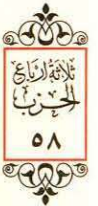 ثلاثة أرباع
الحزب
٥٨